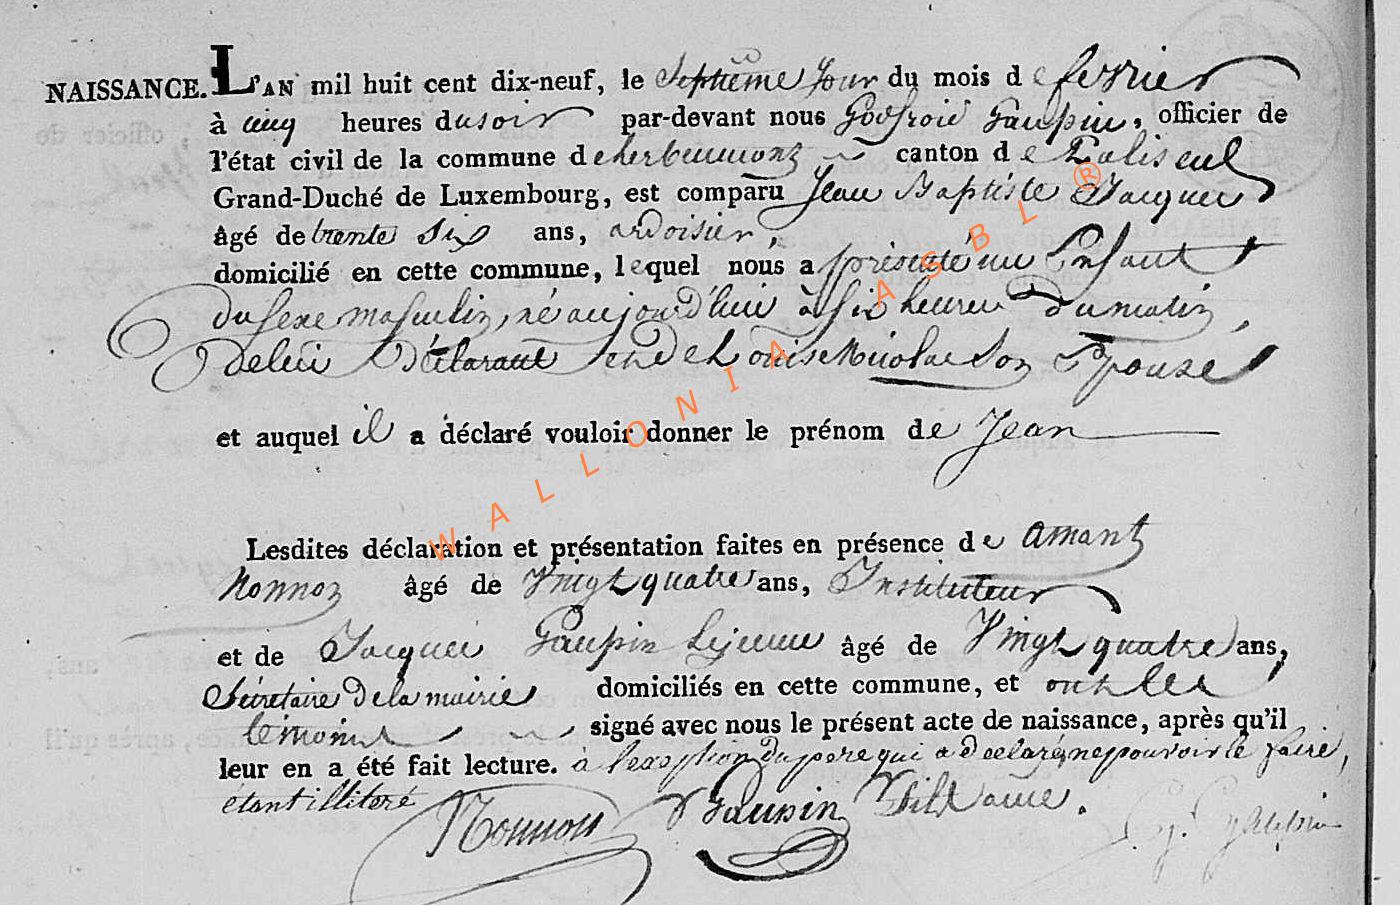 NAISSANCE. L'AN mil huit cent dix-neuf, le Septième Jour du mois de fevrier
à cinq heures du soir par-devant nous Godfroid Gaupin, officier de
l'état civil de la commune de herbeumont canton de Paliseul
Grand-Duché de Luxembourg, est comparu Jean Baptiste Jacques
âgé de trente Six ans, ardoisier,
domicilié en cette commune, lequel nous a présenté un Enfant
du sexe masculin, né aujourd'hui à Six heures du matin,
de lui Déclarant et de Louise Nicolas Son Epouse
et auquel il a déclaré vouloir donner le prénom de Jean
Lesdites déclaration et présentation faites en présence de Amant
Nonnon âgé de Vingt quatre ans, Instituteur
et de Jacques Gaupin Lejeune âgé de Vingt quatre ans,
Sécretaire de la mairie domiciliés en cette commune, et ont les
temoins signé avec nous le présent acte de naissance, après qu'il
leur en a été fait lecture. à l'exception du pere qui a declaré ne pouvoir le faire,
étant illiteré
Nonnon J Gaupin
G. Gaupin
WALLONIA ASBL ®